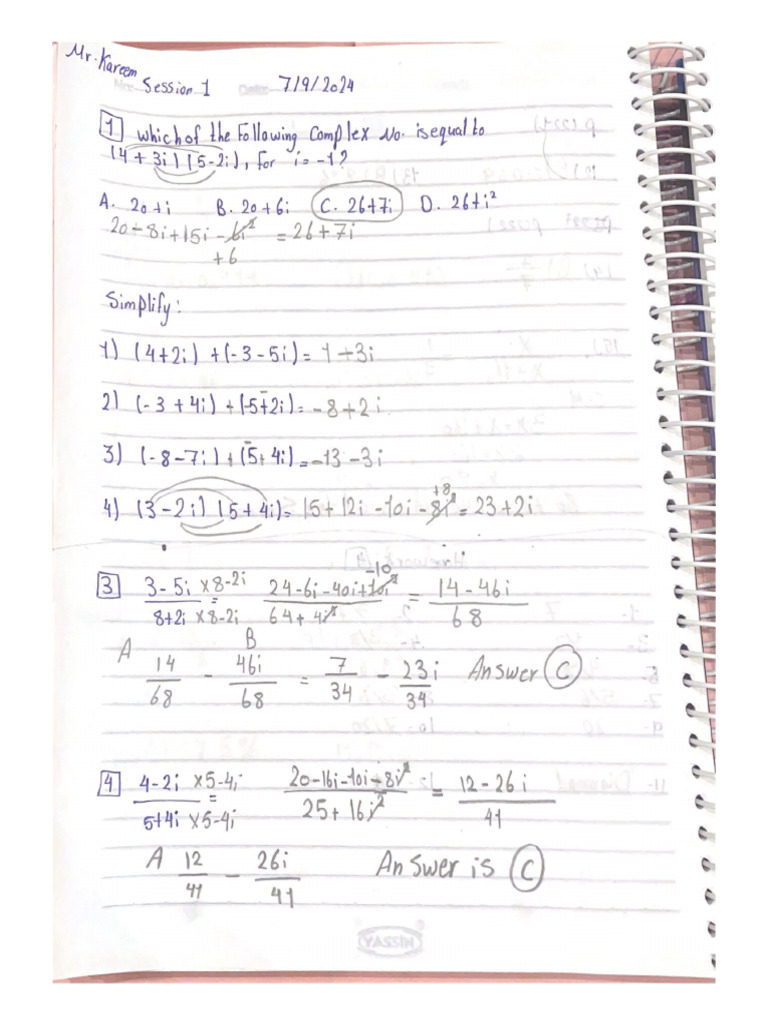 Mr. Kareem
Session 1 Date: 7/9/2024
1 which of the Following Complex No. is equal to
(4+3i)(5-2i), For i=-1?
A. 20+i B. 20+6i C. 26+7i D. 26+i²
20-8i+15i-6i² = 26+7i
+6
Simplify:
1) (4+2i) +(-3-5i)= 1-3i
2) (-3+4i)+(-5-2i)= -8+2i
3) (-8-7i)+(-5+4i)=-13-3i
4) (3-2i)(5+4i)= 15+12i-10i-8i²= 23+2i
+8
3 3-5i/8+2i ×8-2i/×8-2i = 24-6i-40i+10i²/64+4i² = 14-46i/68
-10
A B
14/68 - 46i/68 = 7/34 - 23i/34 Answer C
4 4-2i/5+4i ×5-4i/×5-4i = 20-16i-10i+8i²/25+16i² = 12-26i/41
A 12/41 - 26i/41 Answer is C
YASSIN